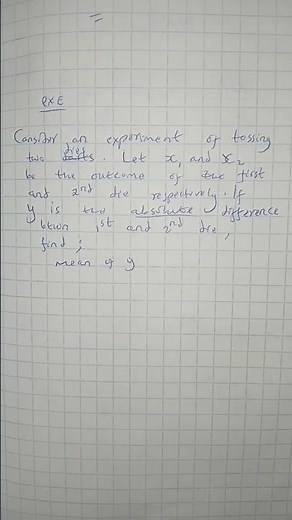 exE
Consider an experiment of tossing
two dies. Let x₁ and x₂
be the outcome of the first
and 2nd die respectively. If
y is the absolute difference
btwn 1st and 2nd die,
find ;
mean of y